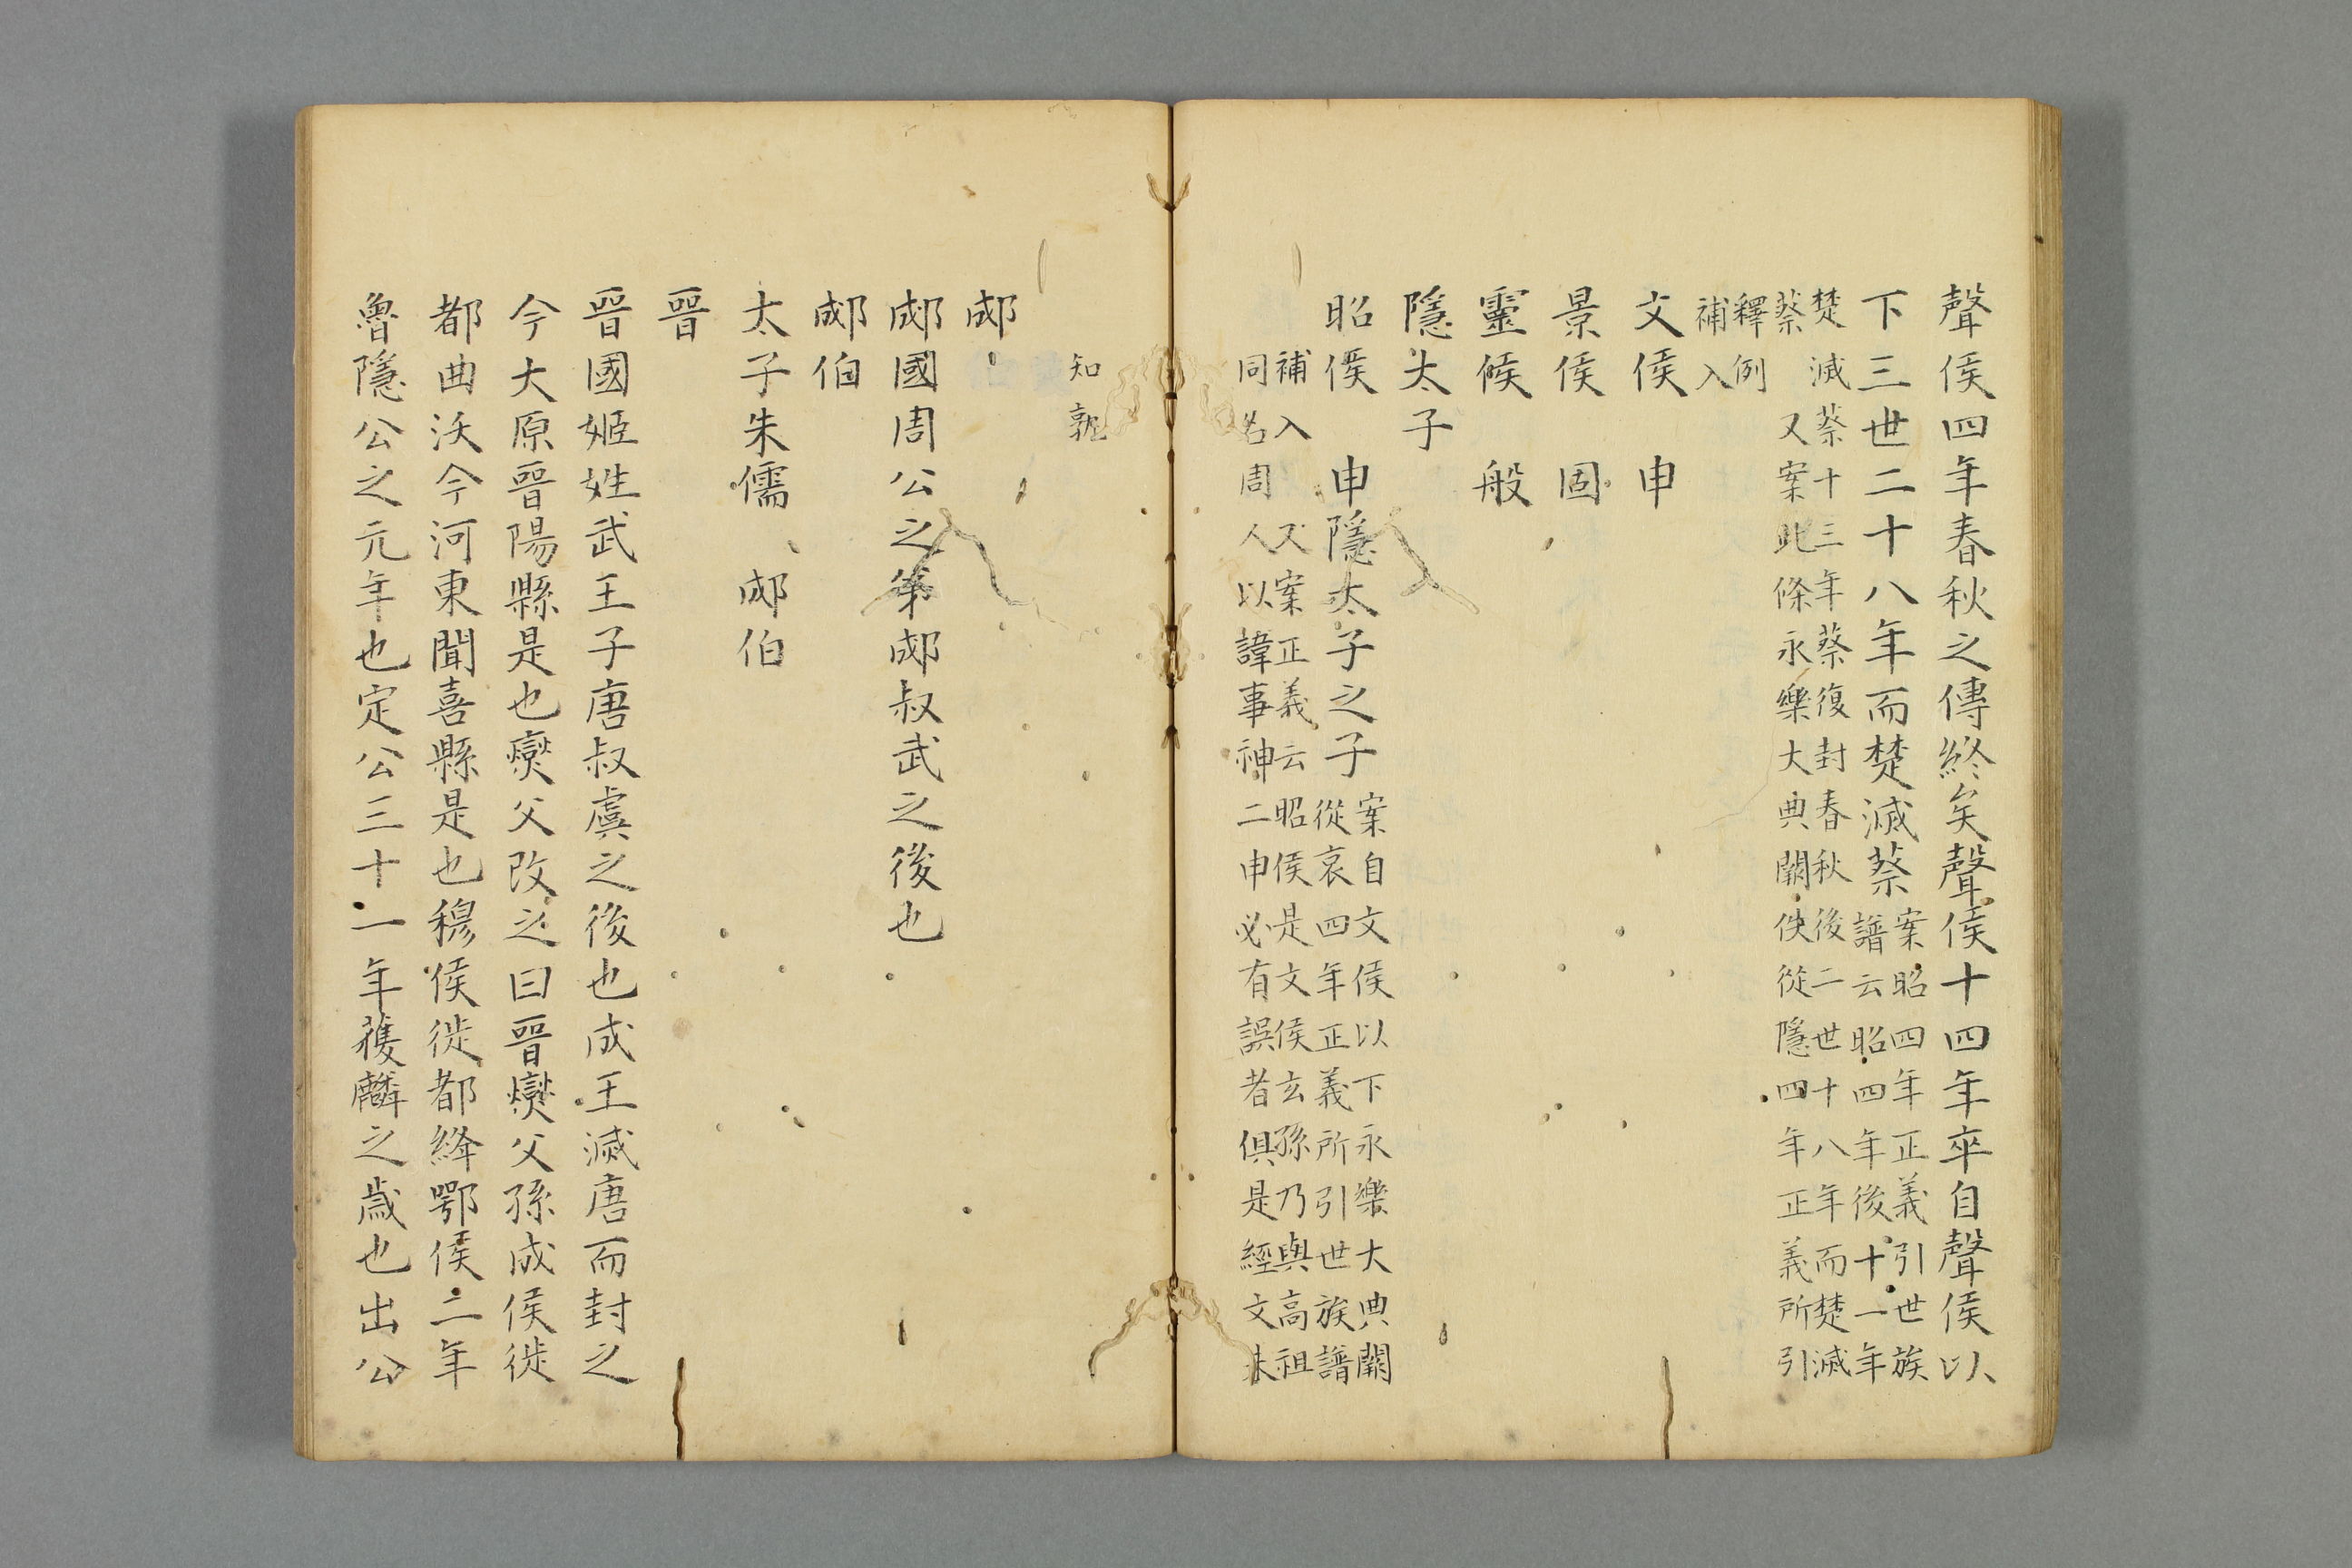 聲侯四年春秋之傳終矣聲侯十四年卒自聲侯以
下三世二十八年而楚滅蔡
案昭四年正義引世族
譜云昭四年後十一年
楚滅蔡十三年蔡復封春秋後二世十八年而楚滅
蔡　又案此條永樂大典闕佚從隱四年正義所引
釋例
補入
文侯　申
景侯　固
靈候　般
隱太子
昭侯　申隱太子之子
案自文侯以下永樂大典闕
從哀四年正義所引世族譜
補入　又案正義云昭侯是文侯玄孫乃與高祖
同名周人以諱事神二申必有誤者俱是經文未
知孰
郕
郕國周公之第郕叔武之後也
郕伯
太子朱儒　郕伯
晉
晉國姬姓武王子唐叔虞之後也成王滅唐而封之
今大原晉陽縣是也燮父改之曰晉燮父孫成侯徙
都曲沃今河東聞喜縣是也穆侯徙都絳鄂侯二年
魯隱公之元年也定公三十一年獲麟之歲也出公